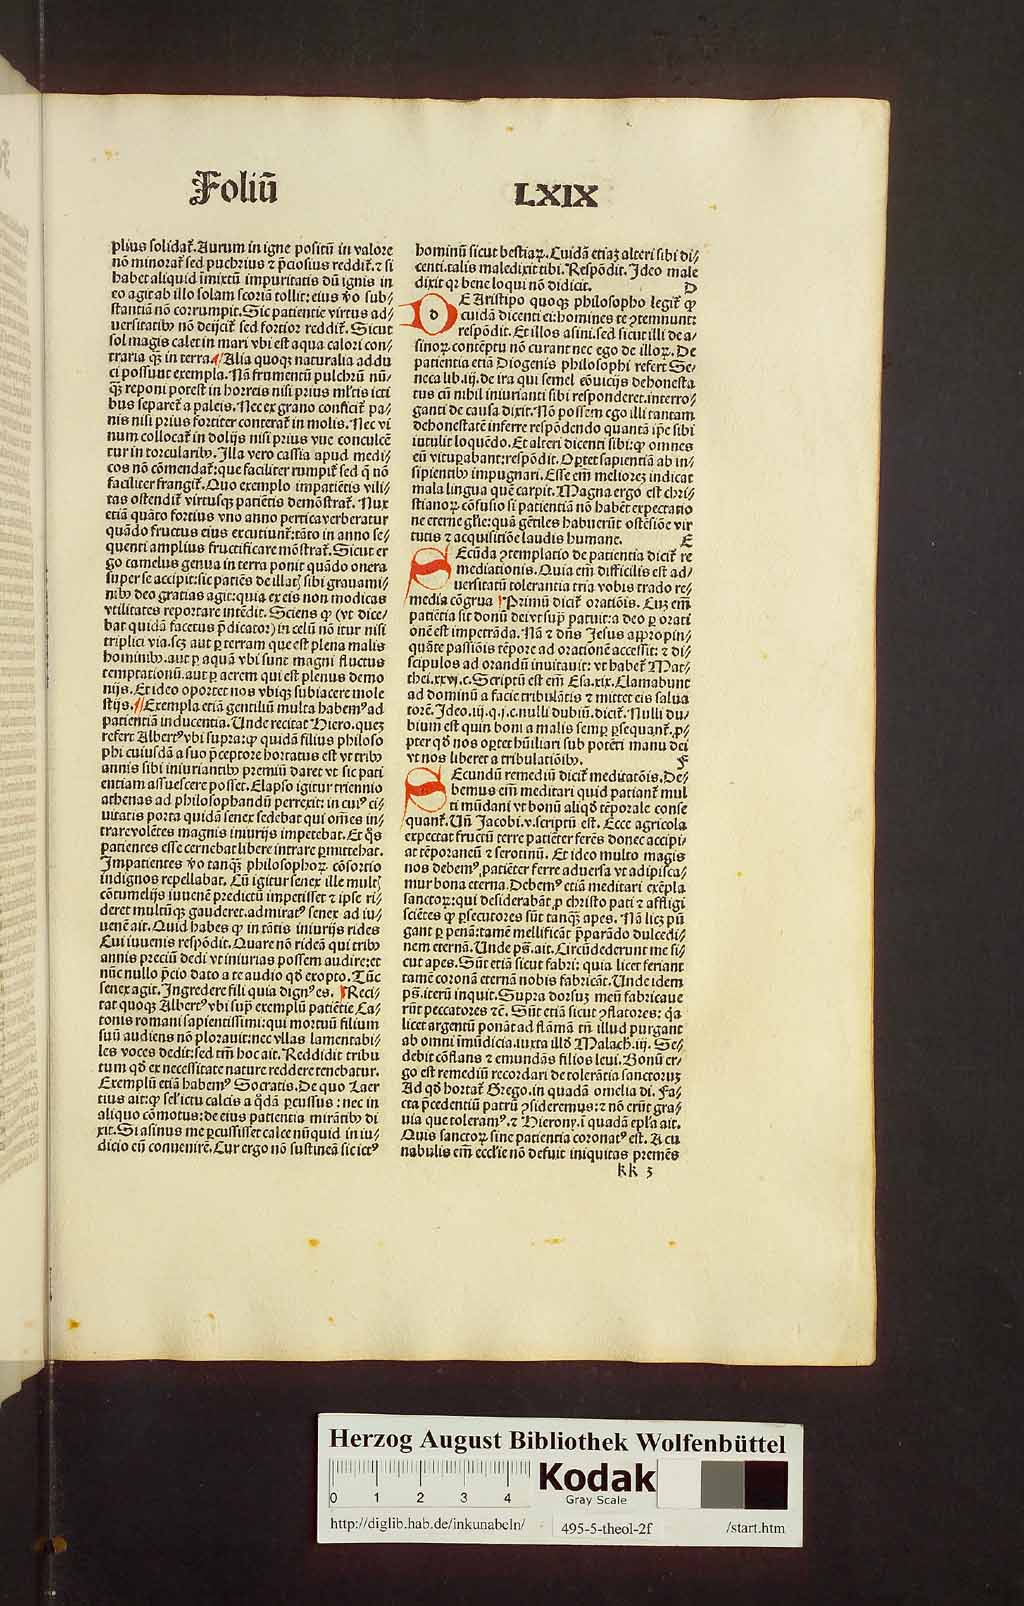 Foliū LXIX
plius solidat̄. Aurum in igne positū in valore
nō minorat̄ sed puchrius ⁊ p̄ciosius reddit̄. ⁊ si
habet aliquid īmixtū impuritatis dū ignis in
eo agit ab illo solam scoriā tollit: eius v̄o sub⸗
stantiā nō corrumpit. Sic patientie virtus ad⸗
uersitatibꝰ nō deijcit̄ sed fortior reddit̄. Sicut
sol magis calet in mari vbi est aqua calori con⸗
traria qꝫ in terra. ¶ Alia quoqꝫ naturalia addu
ci possunt exempla. Nā frumentū pulchrū nū⸗
qꝫ reponi potest in horreis nisi prius ml̄tis icti
bus separet̄ a paleis. Nec ex grano conficit̄ pa⸗
nis nisi prius fortiter conterat̄ in molis. Nec vi
num collocat̄ in dolijs nisi prius vue conculcē
tur in torcularibꝰ. Illa vero cassia apud medi⸗
cos nō cōmendat̄: que faciliter rumpit̄ sed q̄ nō
faciliter frangit̄. Quo exemplo impatiētis vili⸗
tas ostendit̄ virtusqꝫ patiētis demōstrat̄. Nux
etiā quāto fortius vno anno pertica verberatur
quādo fructus eius excutiunt̄: tāto in anno se⸗
quenti amplius fructificare mōstrat̄. Sicut er
go camelus genua in terra ponit quādo onera
super se accipit: sic patiēs de illatꝭ sibi grauami⸗
nibꝰ deo gratias agit: quia ex eis non modicas
vtilitates reportare intēdit. Sciens ꝙ (vt dice⸗
bat quidā facetus p̄dicator) in celū nō itur nisi
triplici via. scꝫ aut ꝑ terram que est plena malis
hominibꝰ. aut ꝑ aquā vbi sunt magni fluctus
temptationū. aut ꝑ aerem qui est plenus demo
nijs. Et ideo oportet nos vbiqꝫ subiacere mole
stijs. ¶ Exempla etiā gentiliū multa habemꝰ ad
patientiā inducentia. Unde recitat Hiero. quez
refert Albertꝰ vbi supra: ꝙ quidā filius philoso
phi cuiusdā a suo p̄ceptore hortatus est vt tribꝰ
annis sibi iniuriantibꝰ premiū daret vt sic pati
entiam assuescere posset. Elapso igitur triennio
athenas ad philosophandū perrexit: in cuiꝰ ci⸗
uitatis porta quidā senex sedebat qui om̄es in⸗
trare volētes magnis iniurijs impetebat. Et q̄s
patientes esse cernebat libere intrare ꝑmittebat.
Impatientes v̄o tanqꝫ philosophoꝝ cōsortio
indignos repellabat. Cū igitur senex ille multꝭ
cōtumelijs iuuenē predictū impetisset ⁊ ipse ri⸗
deret multūqꝫ gauderet. admiratꝰ senex ad iu⸗
uenē ait. Quid habes ꝙ in tātis iniurijs rides
Cui iuuenis respōdit. Quare nō rideā qui tribꝰ
annis preciū dedi vt iniurias possem audire: et
nūc nullo p̄cio dato a te audio qd̄ exopto. Tūc
senex agit. Ingredere fili quia dignꝰ es. ¶ Reci⸗
tat quoqꝫ Albertꝰ vbi sup̄ exemplū patiētie Ca⸗
tonis romani sapientissimi: qui mortuū filium
suū audiens nō plorauit: nec vllas lamentabi⸗
les voces dedit: sed tm̄ hoc ait. Reddidit tribu
tum qd̄ ex necessitate nature reddere tenebatur.
Exemplū etiā habemꝰ Socratis. De quo Laer
tius ait: ꝙ sel̄ ictu calcis a q̄dā ꝑcussus: nec in
aliquo cōmotus: de eius patientia mirātibꝰ di
xit. Si asinus me ꝑcussisset calce nūquid in iu⸗
dicio eū conuenirē. Cur ergo nō sustineā sic ictꝰ
hominū sicut bestiaꝝ. Cuidā etiaꝫ alteri sibi di⸗
centi. talis maledixit tibi. Respōdit. Ideo male
dixit qꝛ bene loqui nō didicit. D
dE Aristipo quoqꝫ philosopho legit̄ ꝙ
cuidā dicenti ei: homines te ꝯtemnunt:
respōdit. Et illos asini. sed sicut illi de a⸗
sinoꝝ contēptu nō curant nec ego de illoꝝ. De
patientia etiā Diogenis philosophi refert Se⸗
neca lib. iij. de ira qui semel cōuicijs dehonesta
tus cū nihil iniurianti sibi responderet. interro⸗
ganti de causa dixit. Nō possem ego illi tantam
dehonestatē inferre respōdendo quantā ip̄e sibi
intulit loquēdo. Et alteri dicenti sibi: ꝙ omnes
eū vituꝑabant: respōdit. Oꝑtet sapientiā ab in⸗
sipientibꝰ impugnari. Esse em̄ meliorez indicat
mala lingua quē carpit. Magna ergo est chri⸗
stianoꝝ cōfusio si patientiā nō habēt expectatio
ne eterne gl̄ie: quā gētiles habuerūt ostēsiōe vir
tutis ⁊ acquisitiōe laudis humane. E
SEcūda ꝯtemplatio de patientia dicit̄ re
mediationis. Quia em̄ difficilis est ad⸗
uersitatū tolerantia tria vobis trado re⸗
media cōgrua ¶ Primū dicit̄ oratiōis. Cuz em̄
patiētia sit donū dei vt sup̄ patuit: a deo ꝑ orati
onē est impetrāda. Nā ⁊ dn̄s Jesus appropin⸗
quāte passiōis tēpore ad orationē accessit: ⁊ di⸗
scipulos ad orandū inuitauit: vt habet̄ Mat⸗
thei. xxvi. c. Scriptū est em̄ Esa. xix. Clamabunt
ad dominū a facie tribulātis ⁊ mittet eis salua
torē. Ideo. iij. q. j. c. nulli dubiū. dicit̄. Nulli du⸗
bium est quin boni a malis semꝑ ꝑsequant̄. ꝓ⸗
pter qd̄ nos oꝑtet hūiliari sub potēti manu dei
vt nos liberet a tribulatiōibꝰ. F
SEcundū remediū dicit̄ meditatōis. De⸗
bemus em̄ meditari quid patiant̄ mul
ti mūdani vt bonū aliqd̄ tēporale conse
quant̄. Un̄ Jacobi. v. scriptū est. Ecce agricola
expectat fructū terre patiēter ferēs donec accipi⸗
at tēporaneū ⁊ serotinū. Et ideo multo magis
nos debemꝰ patiēter ferre aduersa vt adipisca⸗
mur bona eterna. Debemꝰ etiā meditari exēpla
sanctoꝝ: qui desiderabāt ꝓ christo pati ⁊ affligi
sciētes ꝙ ꝑsecutores sūt tanqꝫ apes. Nā licꝫ pū
gant ꝑ penā: tamē mellificāt p̄parādo dulcedi⸗
nem eternā. Unde ps̄. ait. Circūdederunt me si⸗
cut apes. Sūt etiā sicut fabri: quia licet feriant
tamē coronā eternā nobis fabricāt. Unde idem
ps̄. iterū inquit. Supra dorsuꝫ meū fabricaue
rūt peccatores ⁊c̄. Sūt etiā sicut ꝯflatores: q̄a
licet argentū ponāt ad flāmā tn̄ illud purgant
ab omni īmūdicia. iuxta illd̄ Malach. iij. Se⸗
debit cōflans ⁊ emundās filios leui. Bonū er⸗
go est remediū recordari de tolerātia sanctoruꝫ
Ad qd̄ hortat̄ Grego. in quadā omelia di. Fa⸗
cta p̄cedentiū patrū ꝯsideremus: ⁊ nō erūt gra⸗
uia que toleramꝰ. ⁊ Hierony. i quadā epl̄a ait.
Quis sanctoꝝ sine patientia coronatꝰ est. A cu
nabulis em̄ eccl̄ie nō defuit iniquitas premēs
kk 3
Herzog August Bibliothek Wolfenbüttel
0 1 2 3 4
Kodak
Gray Scale
http://diglib.hab.de/inkunabeln/ 495-5-theol-2f /start.htm